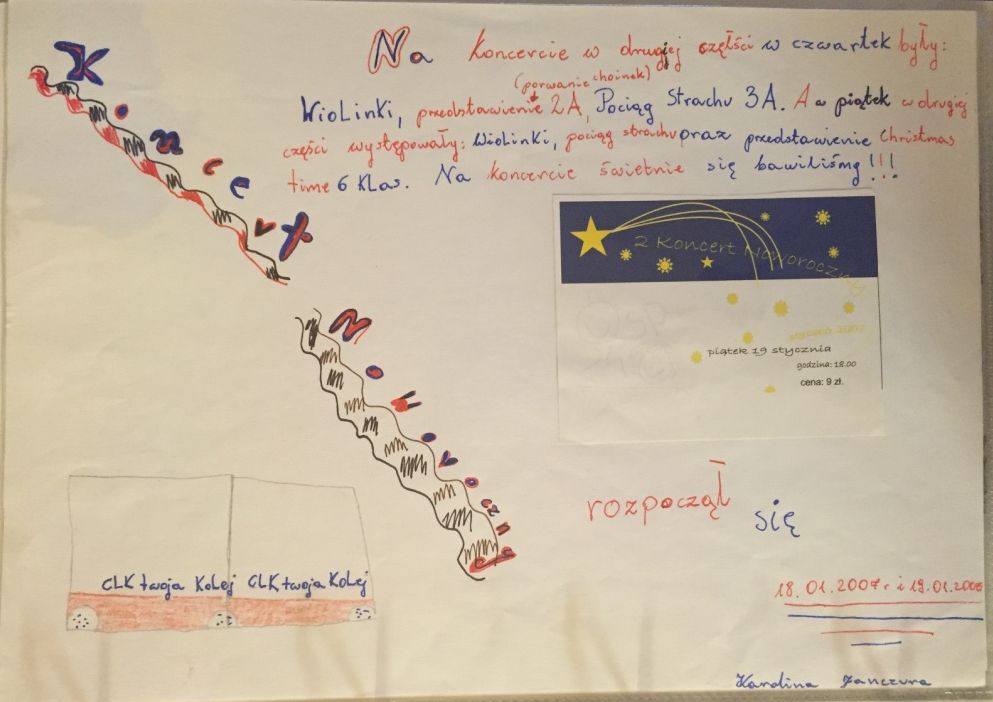 Koncert
Noworoczny
Na Koncercie w drugiej części w czwartek były:
(porwanie choinek)
WioLinki, przedstawienie 2A, Pociąg Strachu 3A. A w piątek w drugiej
części występowały: WioLinki, pociąg strachu oraz przedstawienie Christmas
time 6 klas. Na koncercie świetnie się bawiliśmy!!!
2 Koncert Noworoczny
styczeń 2007
piątek 19 stycznia
godzina: 18.00
cena: 9 zł.
rozpoczął się
CLK twoja KoLej CLK twoja KoLej
18.01.2007r i 19.01.2007
Karolina